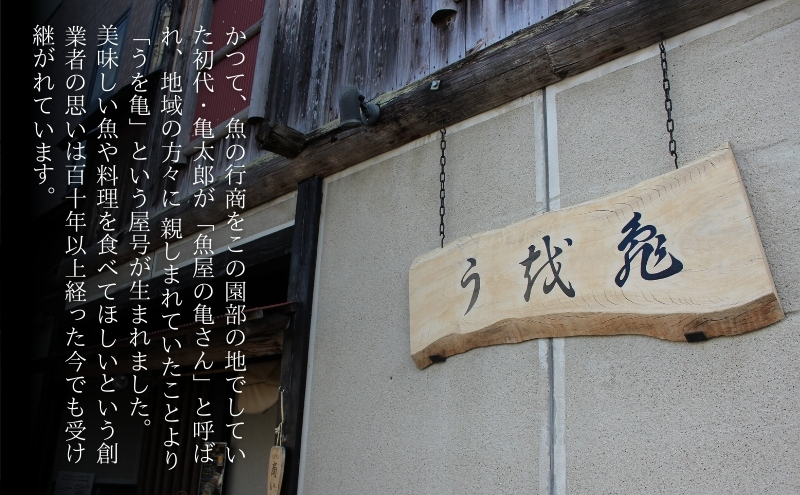 かつて、魚の行商をこの園部の地でしてい
た初代・亀太郎が「魚屋の亀さん」と呼ば
れ、地域の方々に 親しまれていたことより
「うを亀」という屋号が生まれました。
美味しい魚や料理を食べてほしいという創
業者の思いは百十年以上経った今でも受け
継がれています。
う越亀